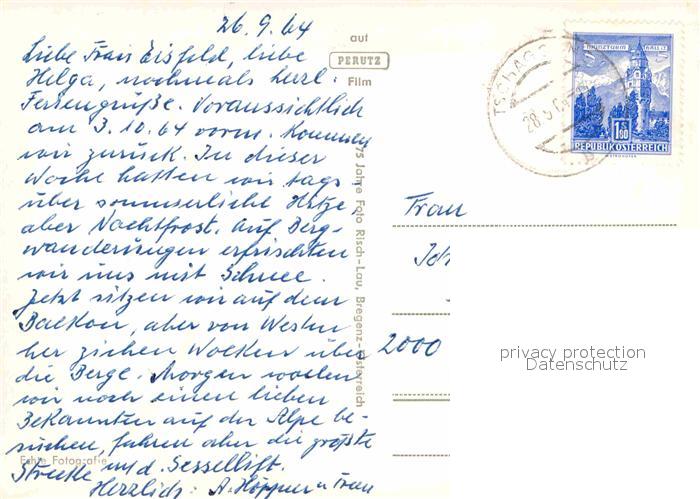 26.9.64
Liebe Frau Eisfeld, liebe
Helga, nochmals herzl.
Feriengrüße. Voraussichtlich
am 3.10.64 vorm. kommen
wir zurück. In dieser
Woche hatten wir tags
über sommerliche Hitze,
aber Nachtfrost. Auf Berg-
wanderungen erfrischten
wir uns mit Schnee.
Jetzt sitzen wir auf dem
Balkon, aber von Westen
her ziehen Wolken über
die Berge. Morgen wollen
wir noch einen lieben
Bekannten auf der Alpe be-
suchen, fahren aber die größte
Strecke m. d. Sessellift.
Herzlich: A. Höppner u. Frau
Echte Fotografie
auf
PERUTZ
Film
75 Jahre Foto Risch-Lau, Bregenz-Österreich
TSCHAGG
28.9.64
MÜNZTURM HALL i.T.
S
S
1.80
REPUBLIK ÖSTERREICH
Frau
2000
privacy protection
Datenschutz